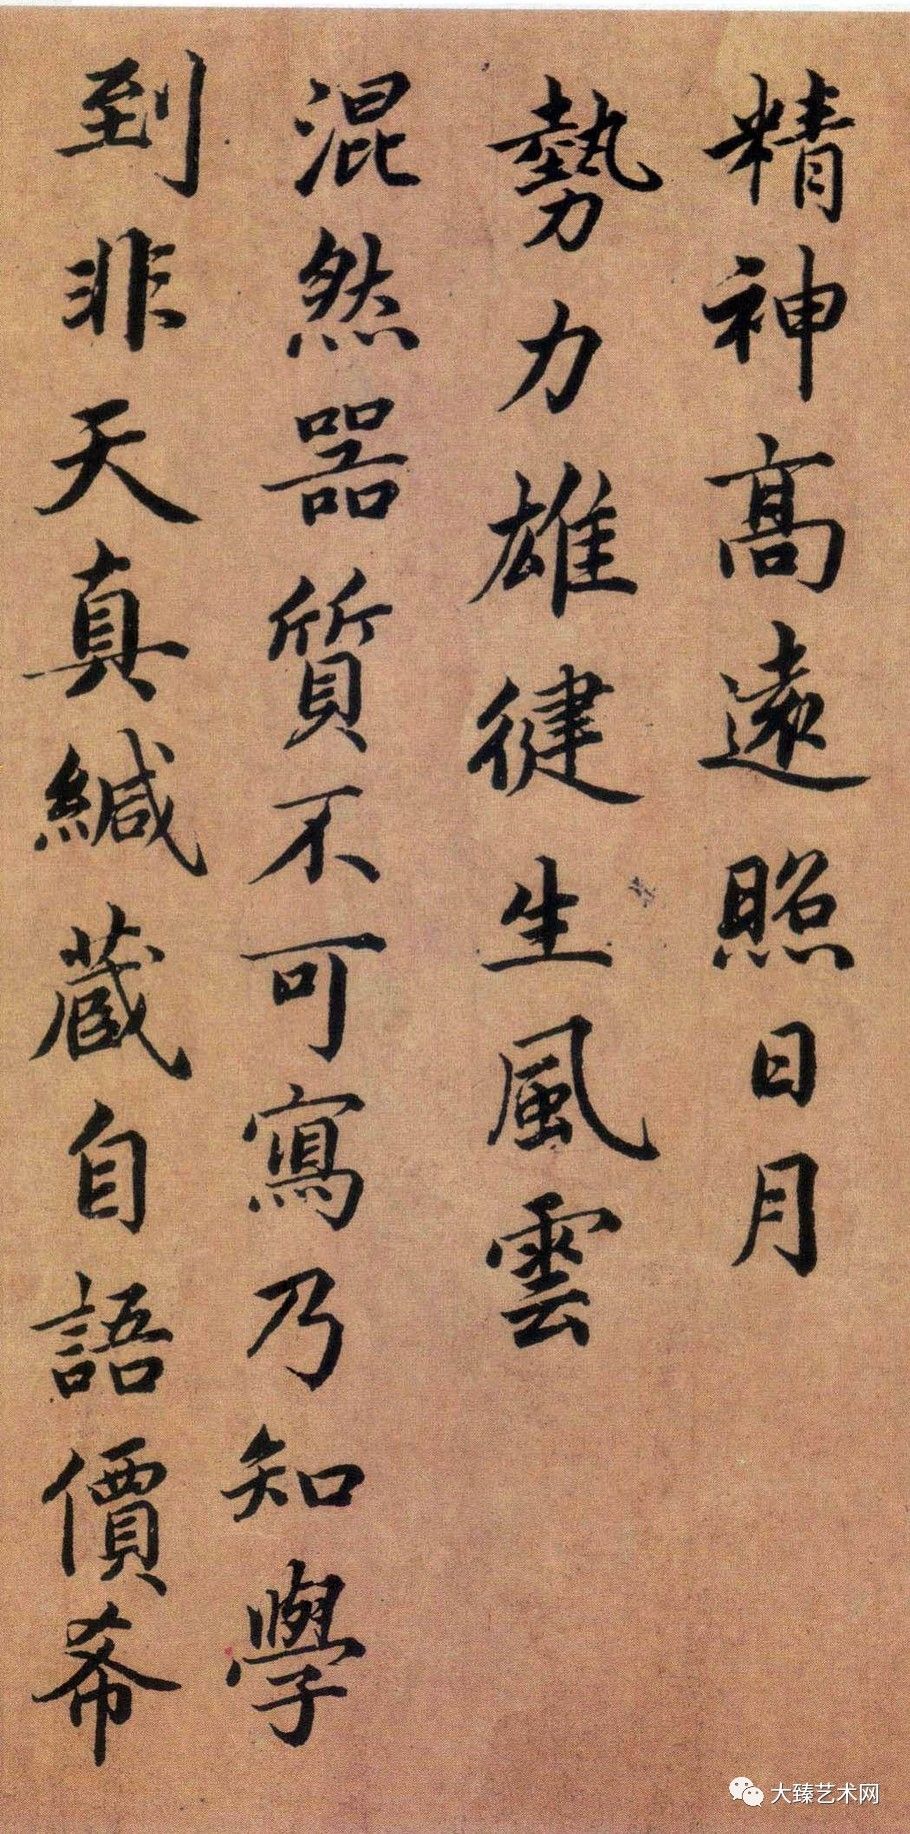 精神高遠照日月
勢力雄健生風雲
混然器質不可寫乃知學
到非天真緘藏自語價希
大臻艺术网